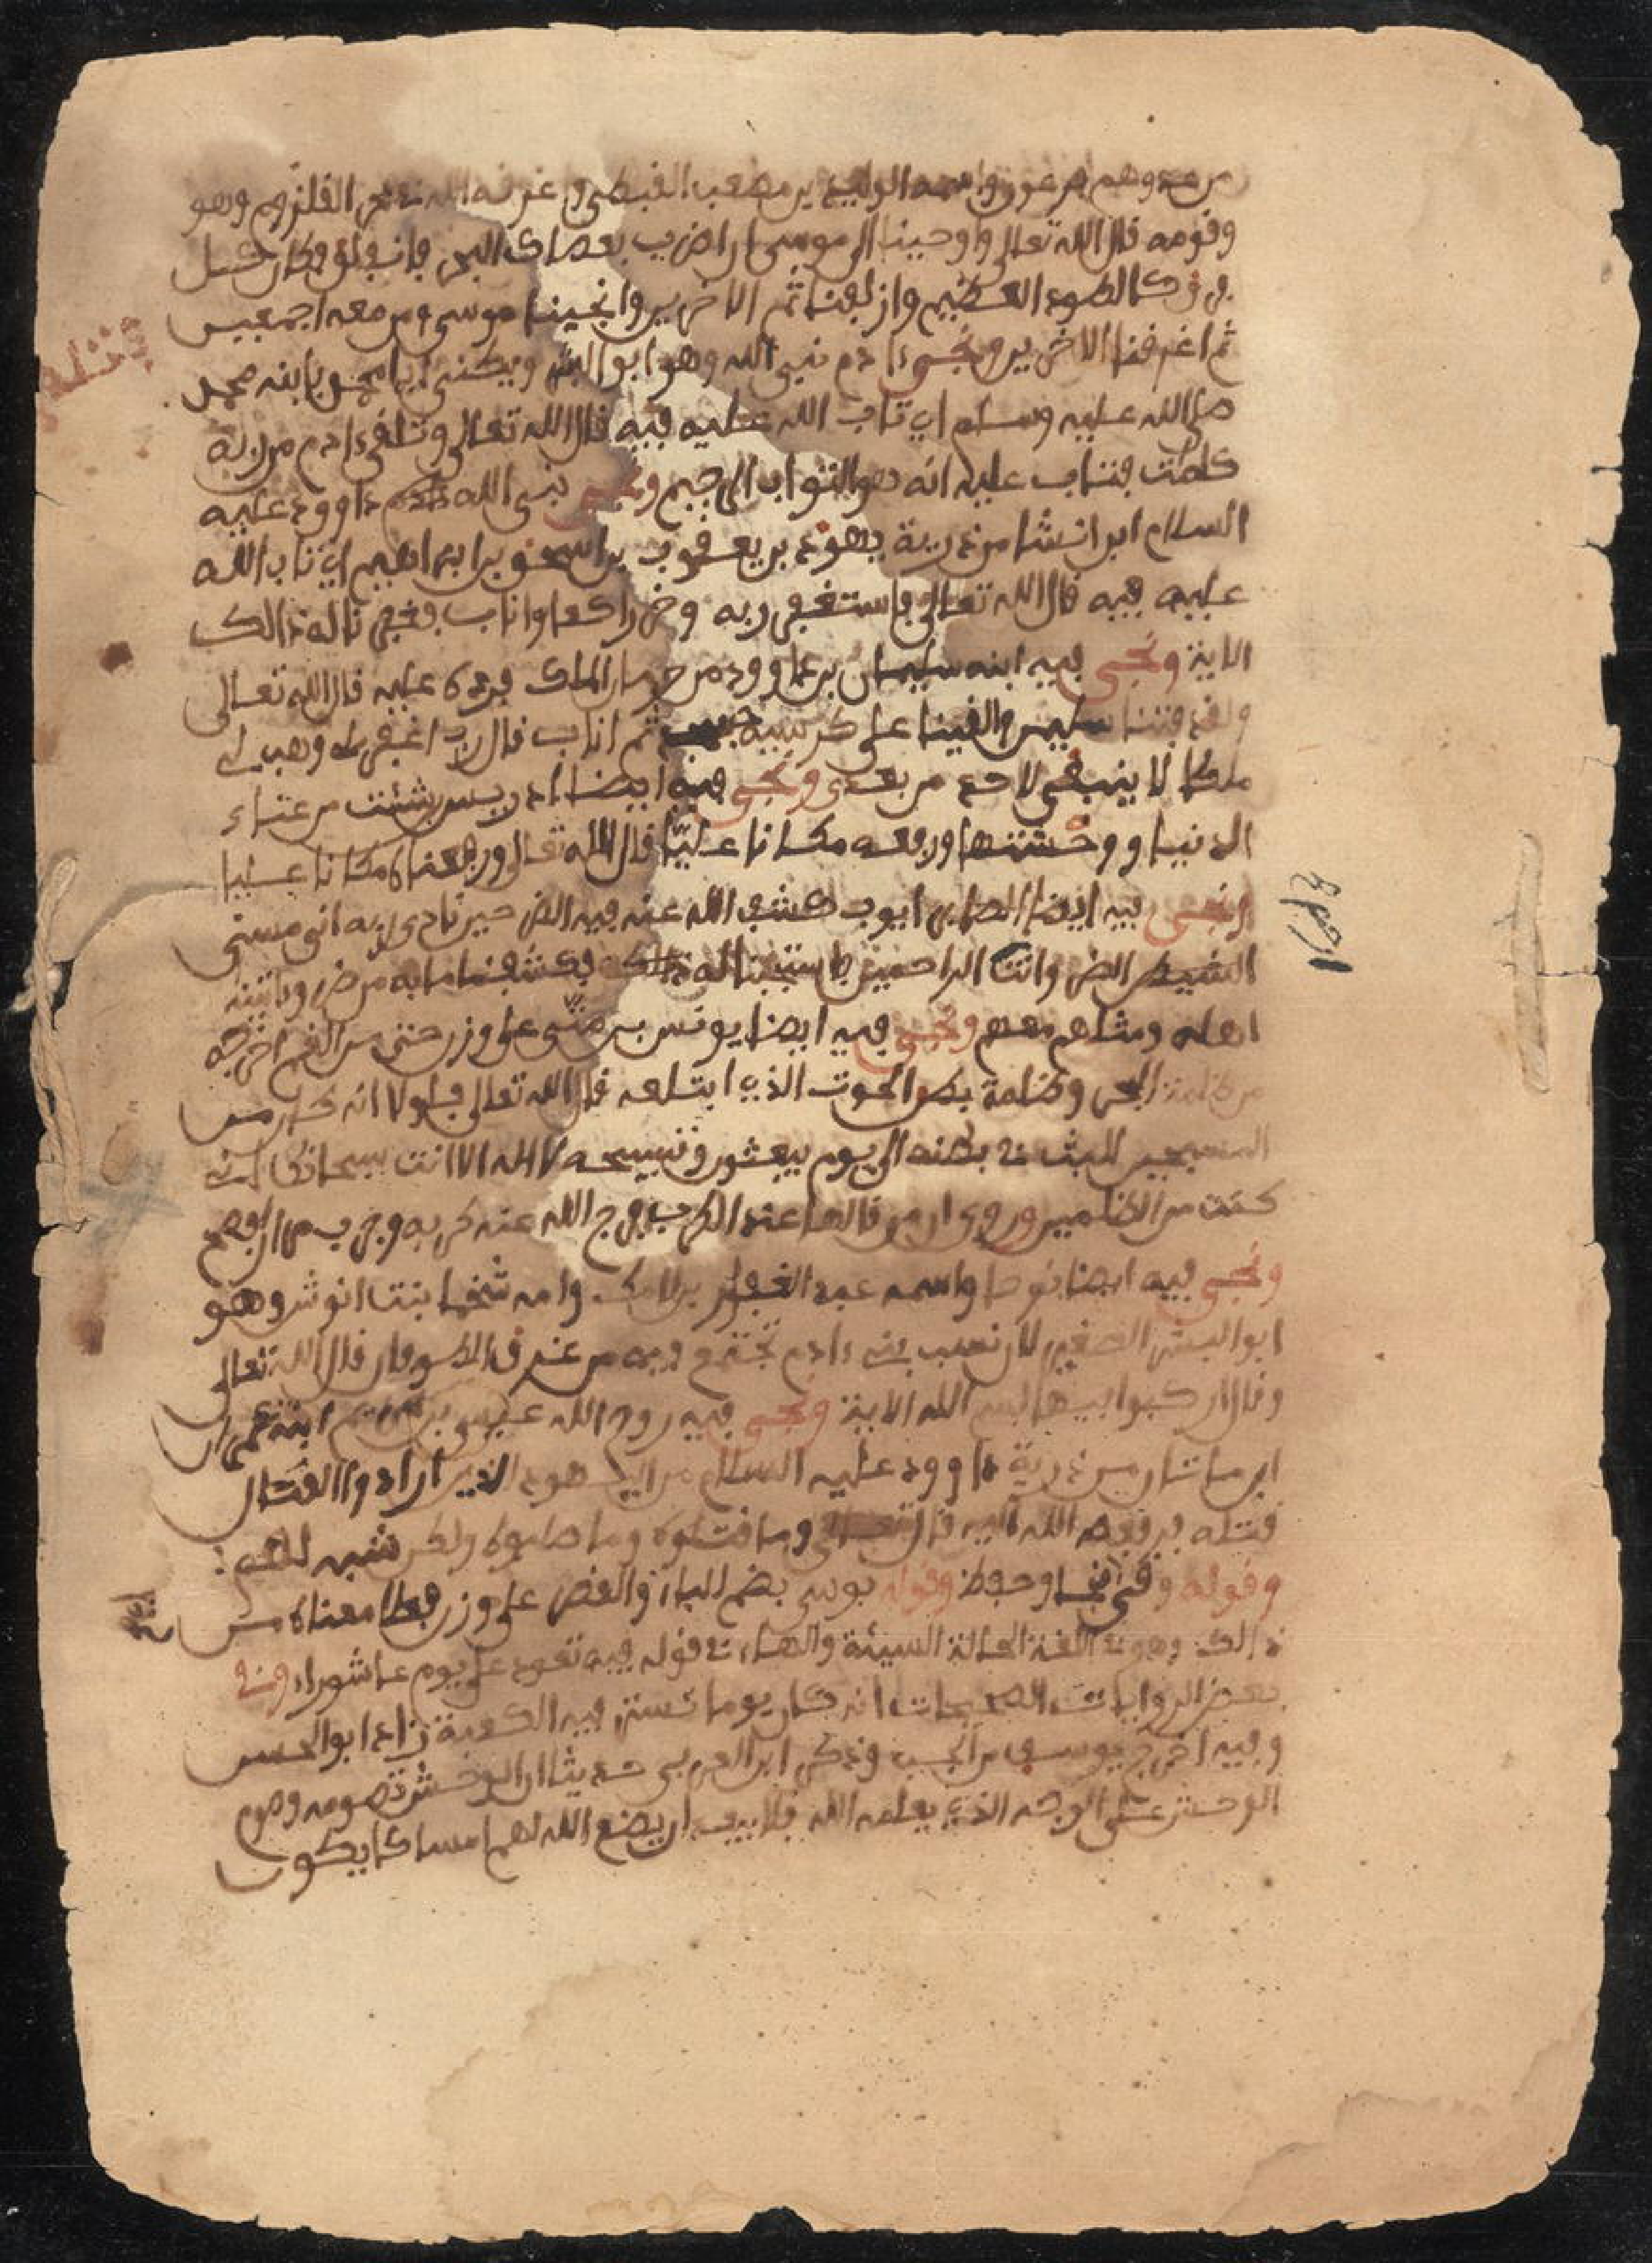 من عدوهم فرعون واسمه الوليد بن مصعب القبطي اغرقه الله في بحر القلزوم وهو
وقومه قال الله تعالى واوحينا الى موسى ان اضرب بعصاك البحر فانفلق فكان كل
فرق كالطود العظيم وازلفنا ثم الاخرين وانجينا موسى ومن معه اجمعين
ثم اغرقنا الاخرين ونجى ءادم نبي الله وهو ابو البشر ويكنى ابا محمد بابنه محمد
صلى الله عليه وسلم اي تاب الله عليه فيه قال الله تعالى وتلقى ءادم من ربه
كلمت فتاب عليه انه هو التواب الرحيم ونجى نبي الله داوود عليه
السلام ابن انشا من ذرية يهوذ بن يعقوب بن اسحق بن ابراهيم اي تاب الله
عليه فيه قال الله تعالى فاستغفر ربه وخر راكعا واناب فغفرنا له ذالك
الاية ونجى فيه ابنه سليمان بن داوود من حرمان الملك فرده عليه قال الله تعالى
ولقد فتنا سليمن والقينا على كرسيه جسدا ثم اناب قال رب اغفر لي وهب لي
ملكا لا ينبغي لاحد من بعدي ونجى فيه ايضا ادريس بشئت من عناء
الدنيا ووحشتها ورفعه مكانا عليا قال الله تعالى ورفعناه مكانا عليا
ونجى فيه ايضا الصابر ايوب كشف الله عنه فيه الضر حين نادى ربه اني مسني
الشيطن الضر وانت الراحمين فاستجبنا له فكشفنا ما به من ضر وءاتينه
اهله ومثلهم معهم ونجى فيه ايضا يونس بن متى على وزن حتى من الغم اخرجه
من ظلمة البحر وظلمة بطن الحوت الذي ابتلعه قال الله تعالى فلولا انه كان من
المسبحين للبث في بطنه الى يوم يبعثون وتسبيحه لا اله الا انت سبحانك اني
كنت من الظلمين وروي ان من قالها عند الكرب فرج الله عنه كربه
ونجى فيه ايضا نوحا واسمه عبد الغفار بن لامك وامه شخما بنت انوش وهو
ابو البشر الصغير لان نسب بني ءادم تجتمع فيه من غرق الطوفان قال الله تعالى
وقال اركبوا فيها بسم الله الاية ونجى فيه روح الله عيسى بن مريم ابنة عمران
ابن ماتان من ذرية داوود عليه السلام من اليهود الذين ارادوا القتال
قتله فرفعه الله اليه قال تعالى وما قتلوه وما صلبوه ولكن شبه لهم
وقوله وقى نجا وحفظ وقوله بوسى بضم الباء والقصر على وزن فعلى معناه من
ذالك وهو في اللغة الحالة السيئة والهاء في قوله فيه تعود على يوم عاشوراء وفي
بعض الروايات الصحيحات انه كان يوما تستر فيه الكعبة زاد ابو الحسن
وفيه اخرج يوسف من الجب وذكر ابن العربي حديثا ان الوحش تصومه وصوم
الوحش على الوجه الذي يعلمه الله فلا يبعد ان يضع الله لهم امساكا يكون